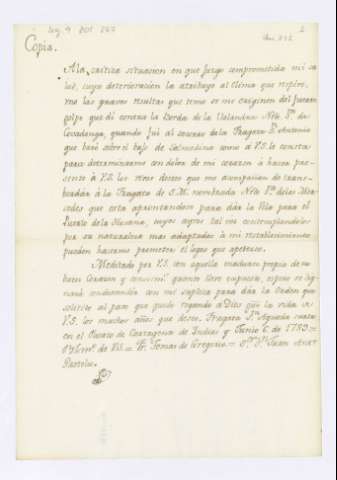 Copia.
A la critica situacion en que juzgo comprometida mi sa
lud, cuya deterioracion la atribuyo al Clima que respiro,
y a las graves resultas que temo se me originen del fuerte
golpe que di contra la borda de la Balandra Ntra. Sra. de
Covadonga, quando fui al socorro de la Fragata Sn. Antonio
que baró sobre el bajo de Salmedina como a V.S. le consta
para determinarme con dolor de mi corazon à hacer pre
sente à V.S. los vivos deseos que me acompañan de trans
bordar à la Fragata de S.M. nombrada Ntra. Sra. de las Mer
cedes que esta aprontandose para dàr la Vela para el
Puerto de la Havana, cuyos ayres tal vez contemplandolos
por su naturaleza mas adaptados à mi restablecimiento
pueden hacerme prometer el logro que apetesco.
Meditado por V.S. con aquella madurez propia de su
buen Corazon y quanto llevo expuesto, espero se dig
nará condescender con mi suplica para dàr la Orden que
solicito al paso que quedo rogando à Dios gue. la vida de
V.S. los muchos años que deseo. Fragata Sta. Agueda surta
en el Puerto de Cartagena de Indias y Junio 6 de 1793 =
Tomas de Peregrin = Sor. Dn. Juan